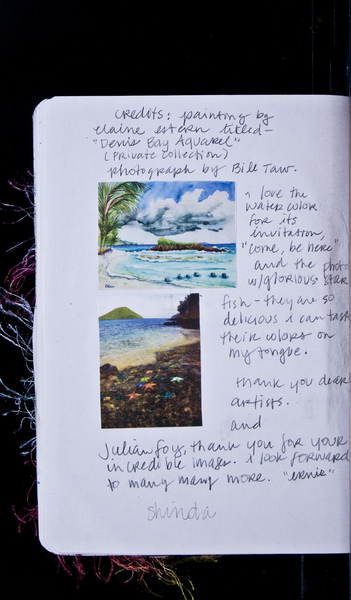 credits: painting by
elaine estern titled-
"Denis Bay Aquarel"
(Private collection)
photograph by Bill Taw.
i love the
water color
for its
invitation,
"come, be here"
and the photo
w/glorious star
fish - they are so
delicious i can taste
their colors on
my tongue.
thank you dear
artists.
and
Julian foy, thank you for your
incredible images. i look forward
to many many more. "ernie"
shinda